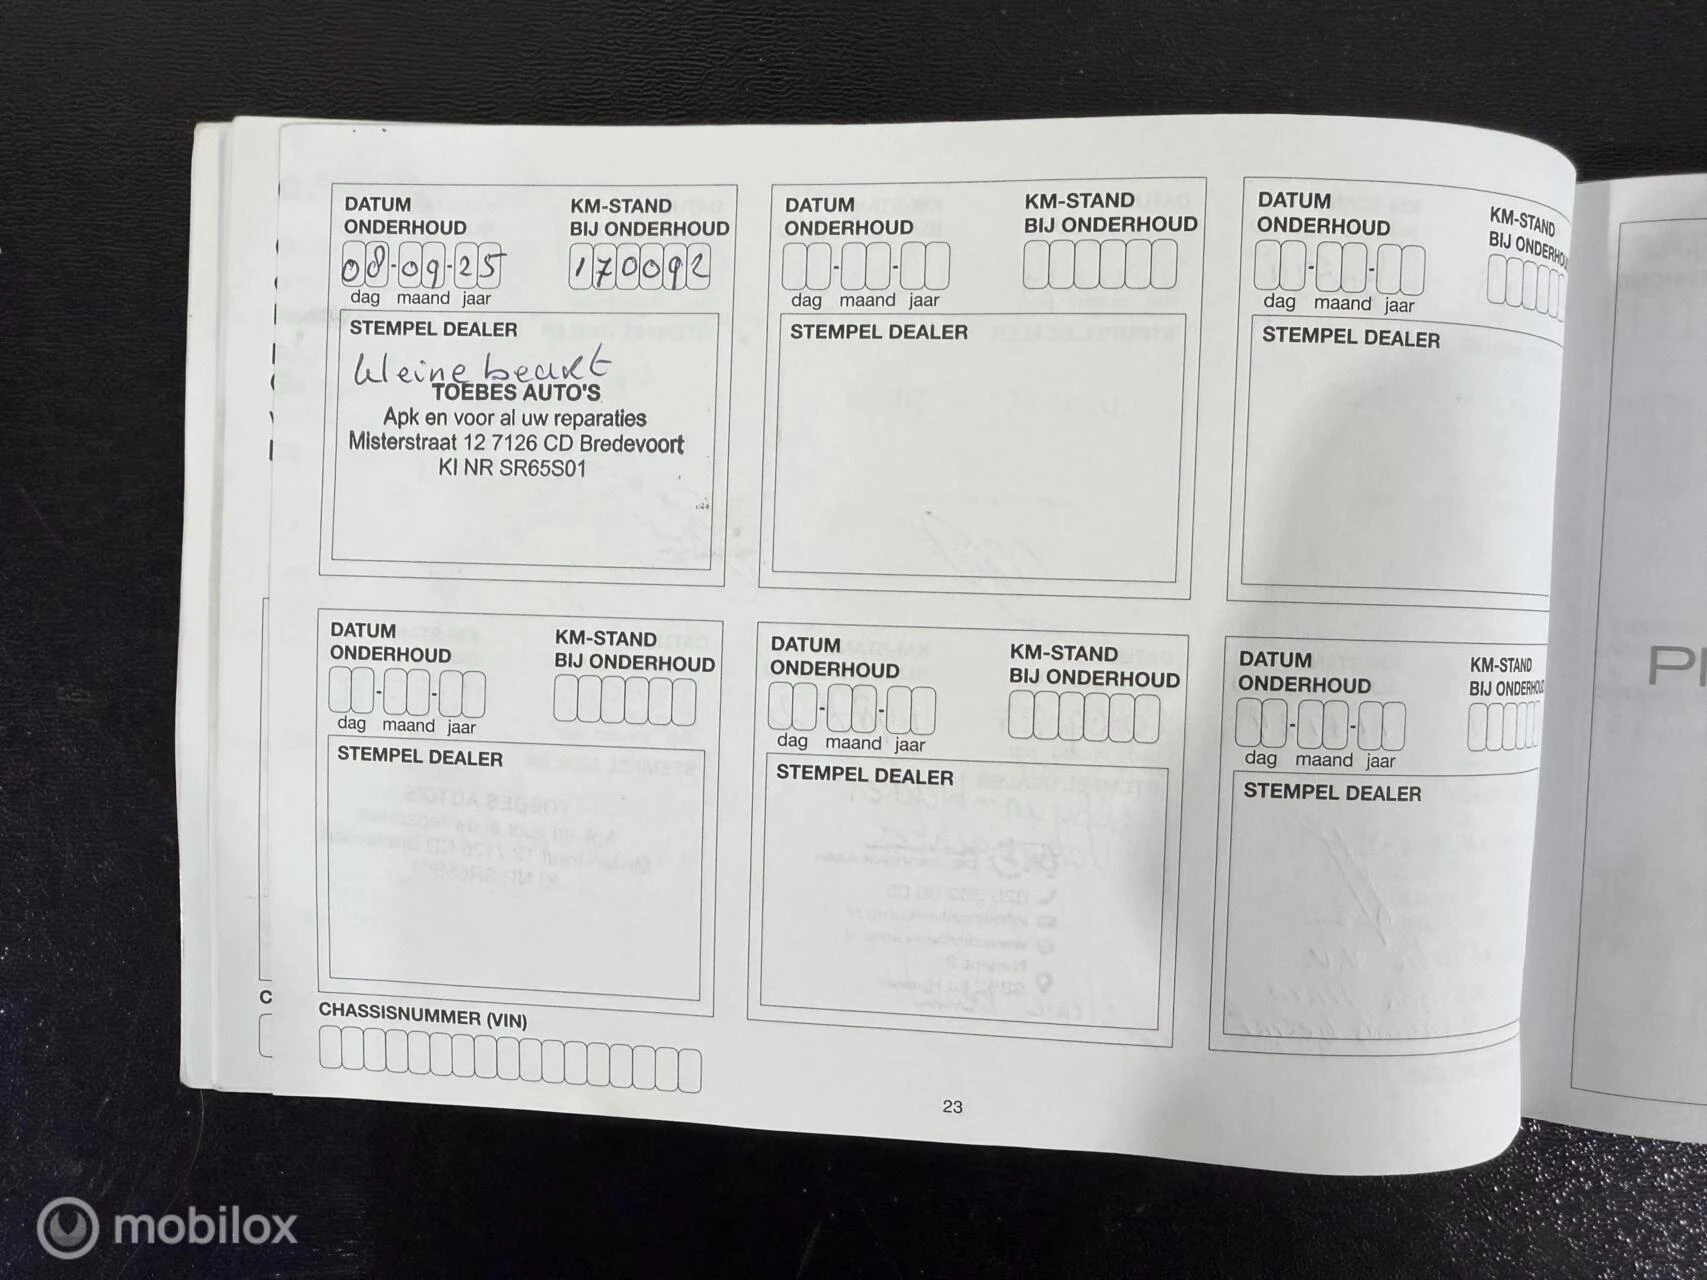 DATUM
ONDERHOUD
KM-STAND
BIJ ONDERHOUD
08-09-25
170092
dag maand jaar
STEMPEL DEALER
kleine beurt
TOEBES AUTO'S
Apk en voor al uw reparaties
Misterstraat 12 7126 CD Bredevoort
KI NR SR65S01
DATUM
ONDERHOUD
KM-STAND
BIJ ONDERHOUD
dag maand jaar
STEMPEL DEALER
DATUM
ONDERHOUD
KM-STAND
BIJ ONDERHO
dag maand jaar
STEMPEL DEALER
DATUM
ONDERHOUD
KM-STAND
BIJ ONDERHOUD
dag maand jaar
STEMPEL DEALER
DATUM
ONDERHOUD
KM-STAND
BIJ ONDERHOUD
dag maand jaar
STEMPEL DEALER
DATUM
ONDERHOUD
KM-STAND
BIJ ONDERHOUD
dag maand jaar
STEMPEL DEALER
CHASSISNUMMER (VIN)
23
mobilox